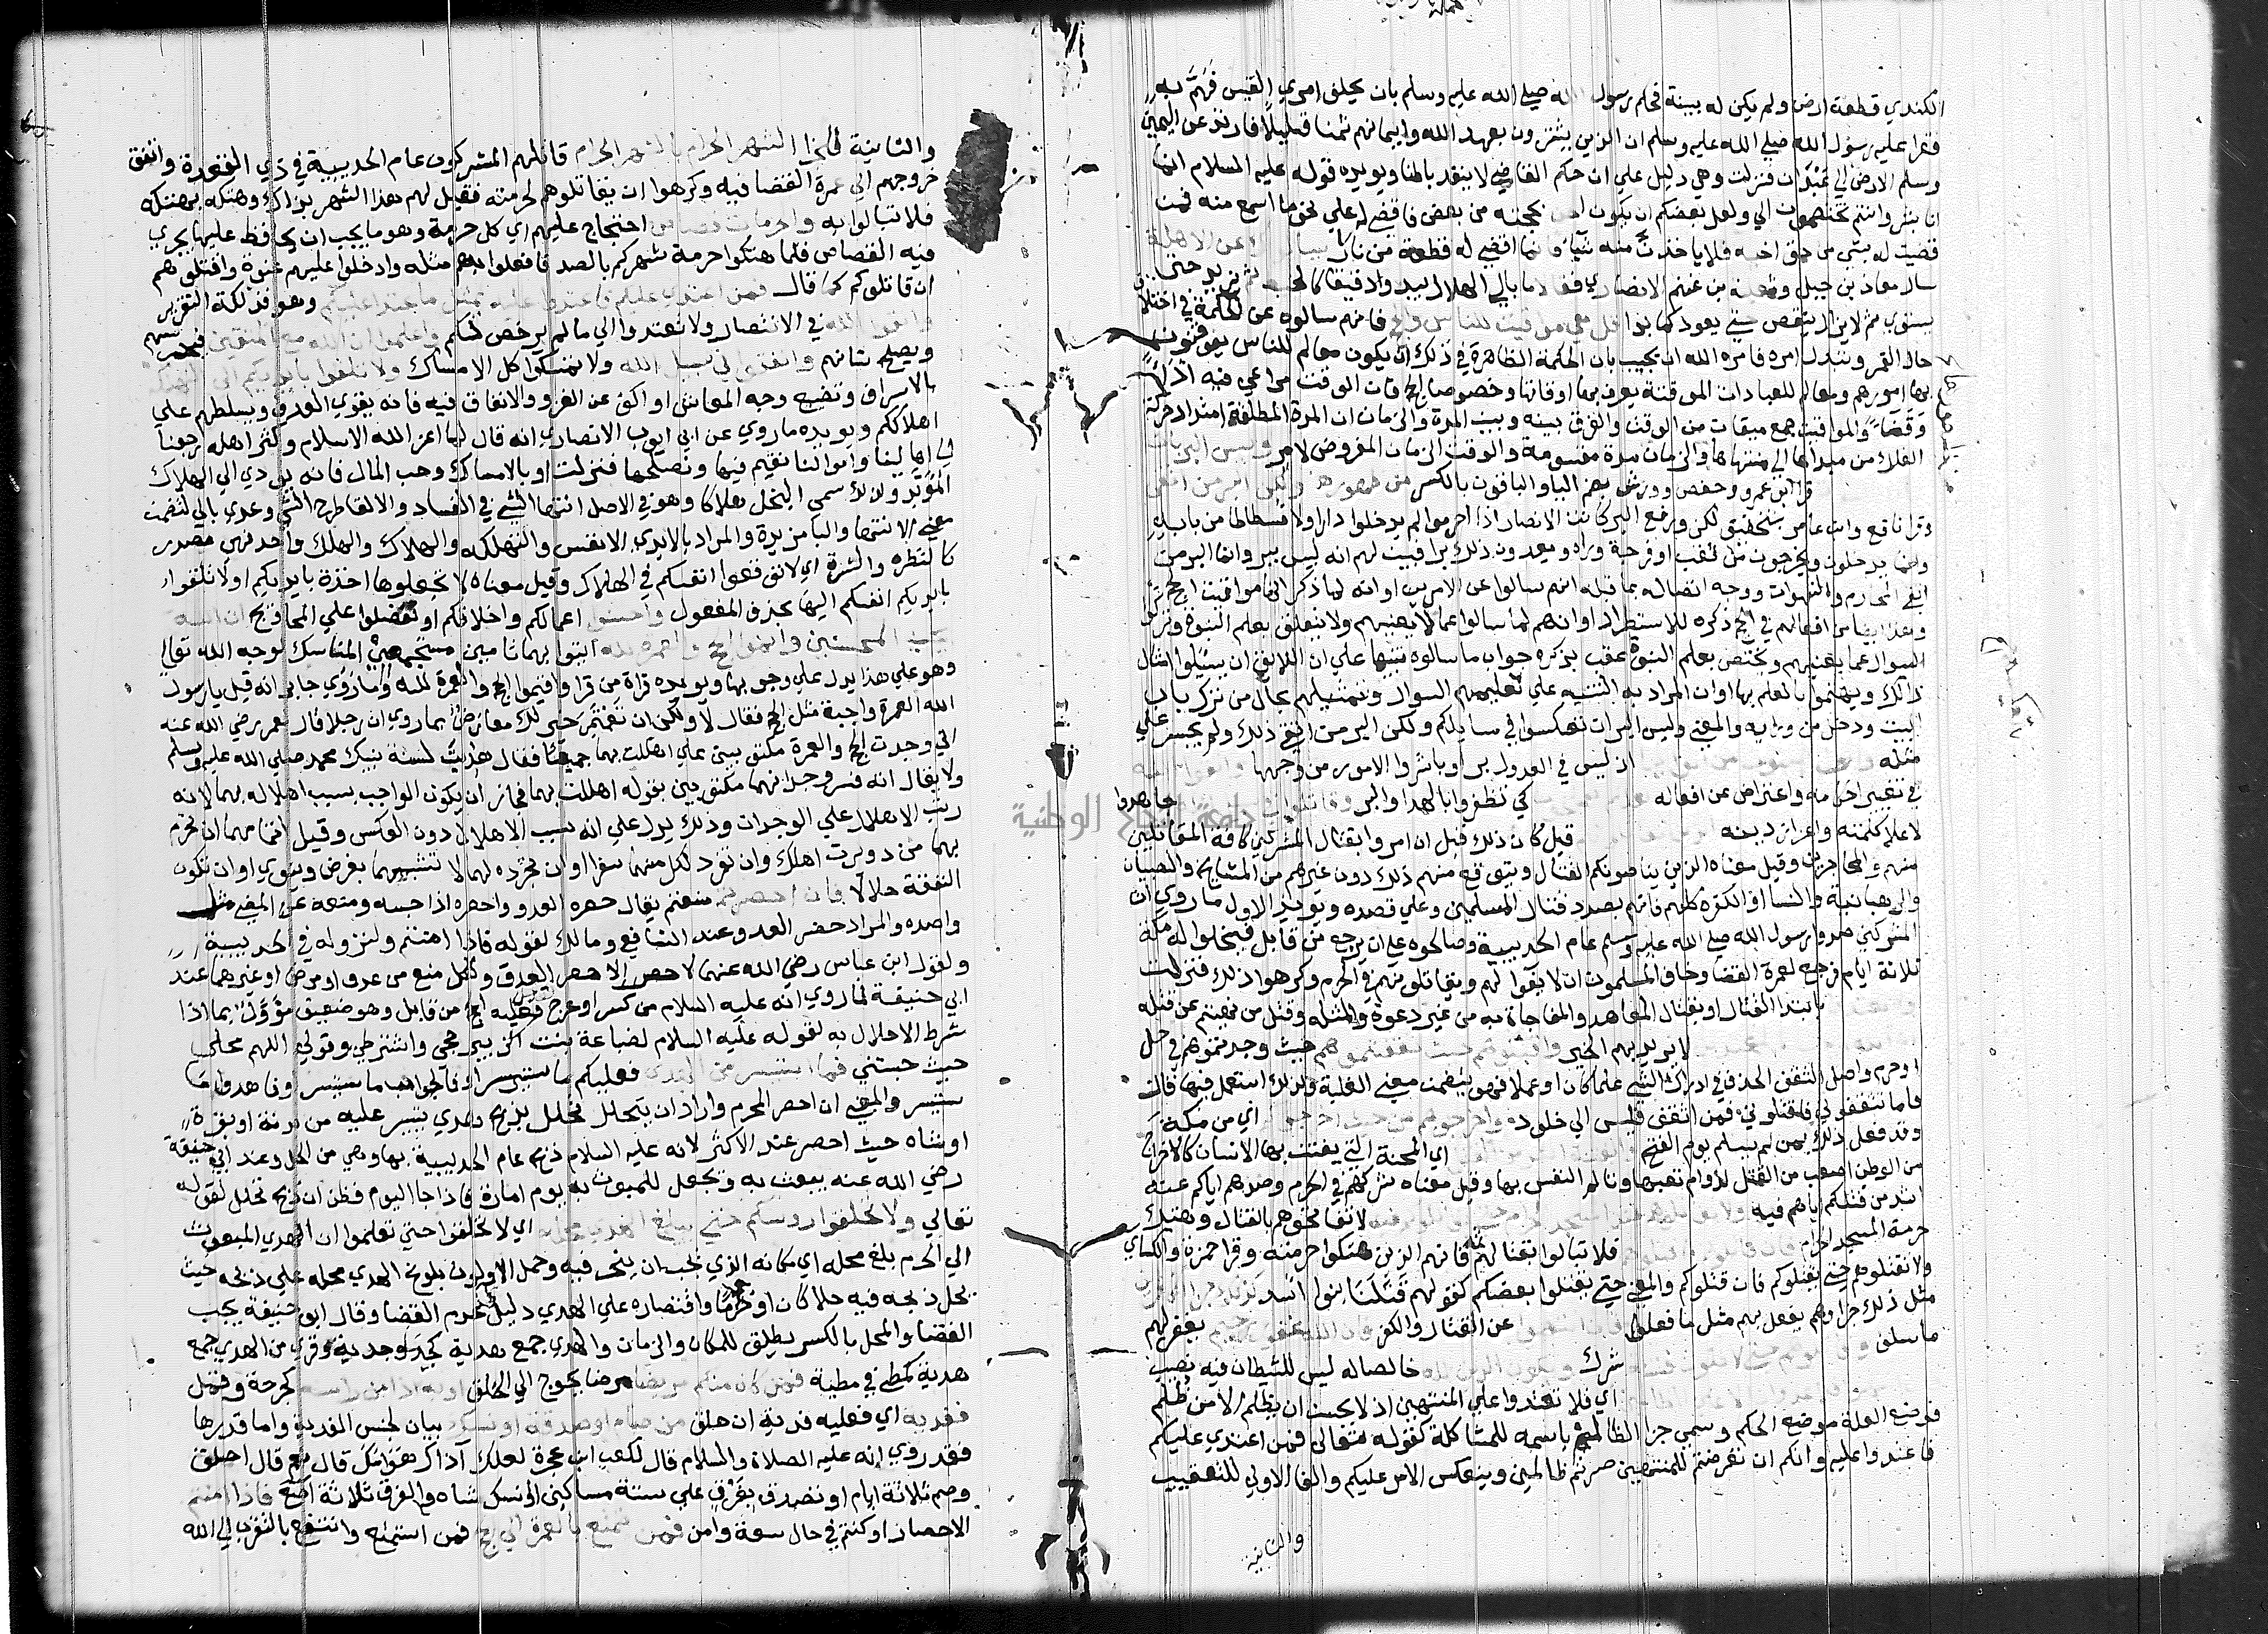 الكندي قطعة ارض ولم يكن له بينة فحكم رسول الله صلي الله عليه وسلم بان يحلف امري القيس فهم به
فقرا عليه رسول الله صلي الله عليه وسلم ان الذين يشترون بعهد الله وايمانهم ثمنا قليلا فارتدع عن اليمين
وسلم الارض الي عبدان فنزلت وهي دليل علي ان حكم القاضي لا ينفذ باطنا ويويده قوله عليه السلام انما
انا بشر وانتم تختصمون الي ولعل بعضكم ان يكون الحن بحجته من بعض فاقضي له علي نحو ما اسمع منه فمن
قضيت له بشي من حق اخيه فلا ياخذن منه شيا فانما اقضي له قطعة من نار يسالونك عن الاهلة
سال معاذ بن جبل وثعلبة بن غنم الانصاري فقالا ما بال الهلال يبد وادقيقا كالخيط ثم يزيد حتي
يستوي ثم لا يزال ينقص حتي يعود كما بدا قل هي مواقيت للناس والحج فانهم سالوه عن الحكمة في اختلاف
حال القمر وتبدل امره فامره الله ان يجيب بان الحكمة الظاهرة في ذلك ان يكون معالم للناس يوقتون
بها امورهم ومعالم للعبادات الموقتة يعرف بها اوقاتها وخصوصا الحج فان الوقت مراعي فيه اداً
وقضاً والمواقيت جمع ميقات من الوقت والفرق بينه وبين المدة والزمان ان المدة المطلقة امتداد حركة
الفلك من مبداها الي منتهاها والزمان مدة مقسومة والوقت الزمان المفروض لامر وليس البر بان
قرا ابن عمرو وحفص وورش بضم البا والباقون بالكسر من ظهورها ولكن البر من اتقي
وقرا نافع وابن عامر بتخفيف لكن ورفع البر كانت الانصار اذا احرموا لم يدخلوا دارا ولا فسطاطا من بابه
وانما يدخلون ويخرجون من نقب او فرجة وراه ويعدون ذلك برا فبين لهم انه ليس ببر وانما البر من
اتقي المحارم والشهوات ووجه اتصاله بما قبله انهم سالوا عن الامرين او انه لما ذكر انها مواقيت الحج
وهذا ايضا من افعالهم في الحج ذكره للاستطراد او انهم لما سالوا عما لا يعنيهم ولا يتعلق بعلم النبوة وتركوا
السوال عما يعنيهم ويختص بعلم النبوة عقب بذكره جواب ما سالوه تنبيها علي ان اللايق ان يسئلوا امثال
ذلك ويهتموا بالعلم بها او ان المراد به التنبيه علي تعليمهم السوال وتمثيلهم بحال من ترك باب
البيت ودخل من ورايه والمعني وليس البر ان تعكسوا في مسايلكم ولكن البر من اتقي ذلك ولم يجسر علي
مثله واتوا البيوت من ابوابها اذ ليس في العدول بر او باشروا الامور من وجهها واتقوا الله
في تغيير احكامه واعتراض عن افعاله لعلكم تفلحون كي تظفروا بالهدا والبر وقاتلوا في سبيل الله جاهدوا
لاعلا كلمته واعزاز دينه قيل كان ذلك قبل ان امروا بقتال المشركين كافة المقاتلين
منهم والمحاجزين وقيل معناه الذين يناصبونكم القتال ويتوقع منهم ذلك دون غيرهم من المشايخ والصبيان
والرهبانية والنسا او الكفرة كلهم فانهم بصدد قتال المسلمين وعلي قصده ويويد الاول ما روي ان
المشركين صدوا رسول الله صلي الله عليه وسلم عام الحديبية وصالحوه علي ان يرجع من قابل فيخلوا له مكة
ثلاثة ايام فرجع لعمرة القضا وخاف المسلمون ان لا يفوا لهم ويقاتلوهم في الحرم وكرهوا ذلك فنزلت
بابتدا القتال او بقتال المعاهد والمفاجاة به من غير دعوة والمثلة وقتل من نهيتم عن قتله
لا يريد بهم الخير واقتلوهم حيث ثقفتموهم حيث وجدتموهم في حل
او حرم واصل الثقف الحذق في ادراك الشي علما كان او عملا فهو يتضمن معني الغلبة ولذلك استعمل فيها قال
فاما تثقفوني فاقتلوني فمن اثقف فليس الي خلود واخرجوهم من حيث اخرجوكم اي من مكة
وقد فعل ذلك بمن لم يسلم يوم الفتح والفتنة اشد من القتل اي المحنة التي يفتتن بها الانسان كالاخراج
من الوطن اصعب من القتل لدوام تعبها وتالم النفس بها وقيل معناه شركهم في الحرم وصدهم اياكم عنه
اشد من قتلكم اياهم فيه ولا تقاتلوهم عند المسجد الحرام حتي يقاتلوكم فيه لا تفاتحوهم بالقتال وهتك
حرمة المسجد الحرام فان قاتلوكم فاقتلوهم فلا تبالوا بقتالهم ثمه فانهم الذين هتكوا حرمته وقرا حمزة والكساي
ولا تقتلوهم حتي يقتلوكم فان قتلوكم والمعني حتي يقتلوا بعضكم كقولهم قتلنا بنوا اسد كذلك جزا الكافرين
مثل ذلك جزاوهم يفعل بهم مثل ما فعلوا فان انتهوا عن القتال والكفر فان الله غفور رحيم يغفر لهم
ما سلف وقاتلوهم حتي لا تكون فتنة شرك ويكون الدين لله خالصا له ليس للشيطان فيه نصيب
اي فلا تعتدوا علي المنتهين اذ لا يحسن ان يظلم الا من ظلم
فوضع العلة موضع الحكم وسمي جزا الظالم باسمه للمشاكلة كقوله تعالي فمن اعتدي عليكم
فاعتدوا عليه وانكم ان تعرضتم للمنتهين صرتم ظالمين وينعكس الامر عليكم والفا الاولي للتعقيب
والثانية
والثانية للجزا الشهر الحرام بالشهر الحرام قاتلهم المشركون عام الحديبية في ذي القعدة واتفق
خروجهم الي عمرة القضا فيه وكرهوا ان يقاتلوهم لحرمته فقيل لهم هذا الشهر بذاك وهتكه بهتكه
فلا تبالوا به والحرمات قصاص احتجاج عليهم اي كل حرمة وهو ما يجب ان يحافظ عليها يجري
فيه القصاص فلما هتكوا حرمة شهركم بالصد فافعلوا بهم مثله وادخلوا عليهم عنوة واقتلوهم
ان قاتلوكم كما قال فمن اعتدي عليكم فاعتدوا عليه بمثل ما اعتدي عليكم وهو فذلكة التقرير
واتقوا الله في الانتصار ولا تعتدوا الي ما لم يرخص لكم واعلموا ان الله مع المتقين فيحرسهم
ويصلح شانهم وانفقوا في سبيل الله ولا تمسكوا كل الامساك ولا تلقوا بايديكم الي التهلكة
بالاسراف وتضييع وجه المعاش او الكف عن الغزو والانفاق فيه فانه يقوي العدو ويسلطهم علي
اهلاككم ويويده ما روي عن ابي ايوب الانصاري انه قال لما اعز الله الاسلام وكثر اهله رجعنا
الي اهالينا واموالنا نقيم فيها ونصلحها فنزلت او بالامساك وحب المال فانه يودي الي الهلاك
المؤبد ولذلك سمي البخل هلاكا وهو في الاصل انتها الشي في الفساد والالقا طرح الشي وعدي بالي لتضمن
معني الانتها والبا مزيدة والمراد بالايدي الانفس والتهلكه والهلاك والهلك واحد فهي مصدر
كالتضره والتسرة اي لا توقعوا انفسكم في الهلاك وقيل معناه لا تجعلوها اخذة بايديكم او لا تلقوا
بايديكم انفسكم اليها بحذف المفعول واحسنوا اعمالكم واخلاقكم او تفضلوا علي المحاويج ان الله
يحب المحسنين واتموا الحج والعمرة لله ايتوا بهما تامين مستجمعين المناسك لوجه الله تعالي
وهو علي هذا يدل علي وجوبها ويويده قراة من قرا واقيموا الحج والعمرة لله وما روي جابر انه قيل يا رسول
الله العمرة واجبة مثل الحج فقال لا ولكن ان تعتمر خير لك معارض بما روي ان رجلا قال لعمر رضي الله عنه
اني وجدت الحج والعمرة مكتوبين علي اهللت بهما جميعا فقال هديت لسنة نبيك محمد صلي الله عليه وسلم
ولا يقال انه فسر وجدانهما مكتوبين بقوله اهللت بهما فجاز ان يكون الواجب بسبب اهلاله بهما لانه
رتب الاهلال علي الوجدان وذلك يدل علي انه سبب الاهلال دون العكس وقيل اتمامهما ان تحرم
بهما من دويرت اهلك وان تفرد لكل منهما سفرا او ان تجرده لهما لا تشبهما بغرض دنيوي او ان تكون
النفقة حلالا فان احصرتم منعتم يقال حصره العدو واحصره اذا حبسه ومنعه عن المضي مثل
واصده والمراد حصر العدو عند الشافعي ومالك لقوله فاذا امنتم ولنزوله في الحديبية
ولقول ابن عباس رضي الله عنهما لا حصر الا حصر العدو وكل منع من عدو او مرض او غيرهما عند
ابي حنيفة لما روي انه عليه السلام من كسر او عرج فعليه الحج من قابل وهو ضعيف مؤول بما اذا
شرط الاحلال به لقوله عليه السلام لضباعة بنت الزبير حجي واشترطي وقولي اللهم محلي
حيث حبستني فما استيسر من الهدي فعليكم ما استيسر او فالواجب ما استيسر او فاهدوا ما
ستيسر والمعني ان احصر المحرم واراد ان يتحلل تحلل بذبح هدي يتيسر عليه من بدنة او بقرة
او شاه حيث احصر عند الاكثر لانه عليه السلام ذبح عام الحديبية بها وهي من الحل وعند ابي حنيفة
رضي الله عنه يبعث به ويجعل للمبعوث به يوم امارة فاذا جا اليوم فظن ان ذبح تحلل لقوله
تعالي ولا تحلقوا روسكم حتي يبلغ الهدي محله اي لا تحلقوا حتي تعلموا ان الهدي المبعوث
الي الحرم بلغ محله اي مكانه الذي يجب ان ينحر فيه وحمل الاولون بلوغ الهدي محله علي ذبحه حيث
يحل ذبحه فيه حلا كان او حرما واقتصاره علي الهدي دليل عدم القضا وقال ابو حنيفة يجب
القضا والمحل بالكسر يطلق للمكان والزمان والهدي جمع هدية كجدي وجدية وقري من الهدي جمع
هدية كمطي في مطية فمن كان منكم مريضا مرضا يحوج الي الحلق او به اذا من راسه كجرحة وقمل
ففدية اي فعليه فدية ان حلق من صيام او صدقة او نسك بيان لجنس الفدية واما قدرها
فقد روي انه عليه الصلاة والسلام قال لكعب ابن عجرة لعلك آذاك هوامك قال نعم قال احلق
وصم ثلاثة ايام او تصدق بفرق علي ستة مساكين او انسك شاه والفرق ثلاثة اصع فاذا امنتم
الاحصار او كنتم في حال سعة وامن فمن تمتع بالعمرة الي الحج فمن استمتع وانتفع بالتقرب الي الله
جامعة النجاح الوطنية